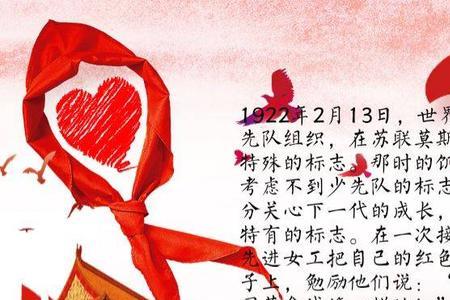 1922年2月13日，世界
先队组织，在苏联莫斯
特殊的标志。那时的饰
考虑不到少先队的标志
分关心下一代的成长，
特有的标志。在一次接
先进女工把自己的红色
子上，勉励他们说：“